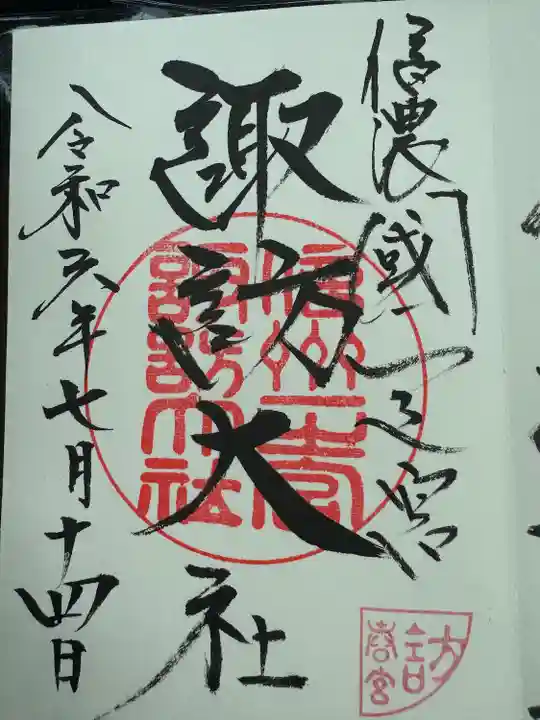 信濃國一之宮
諏訪大社
信州一宮
諏訪大社
令和六年七月十四日
諏訪
春宮